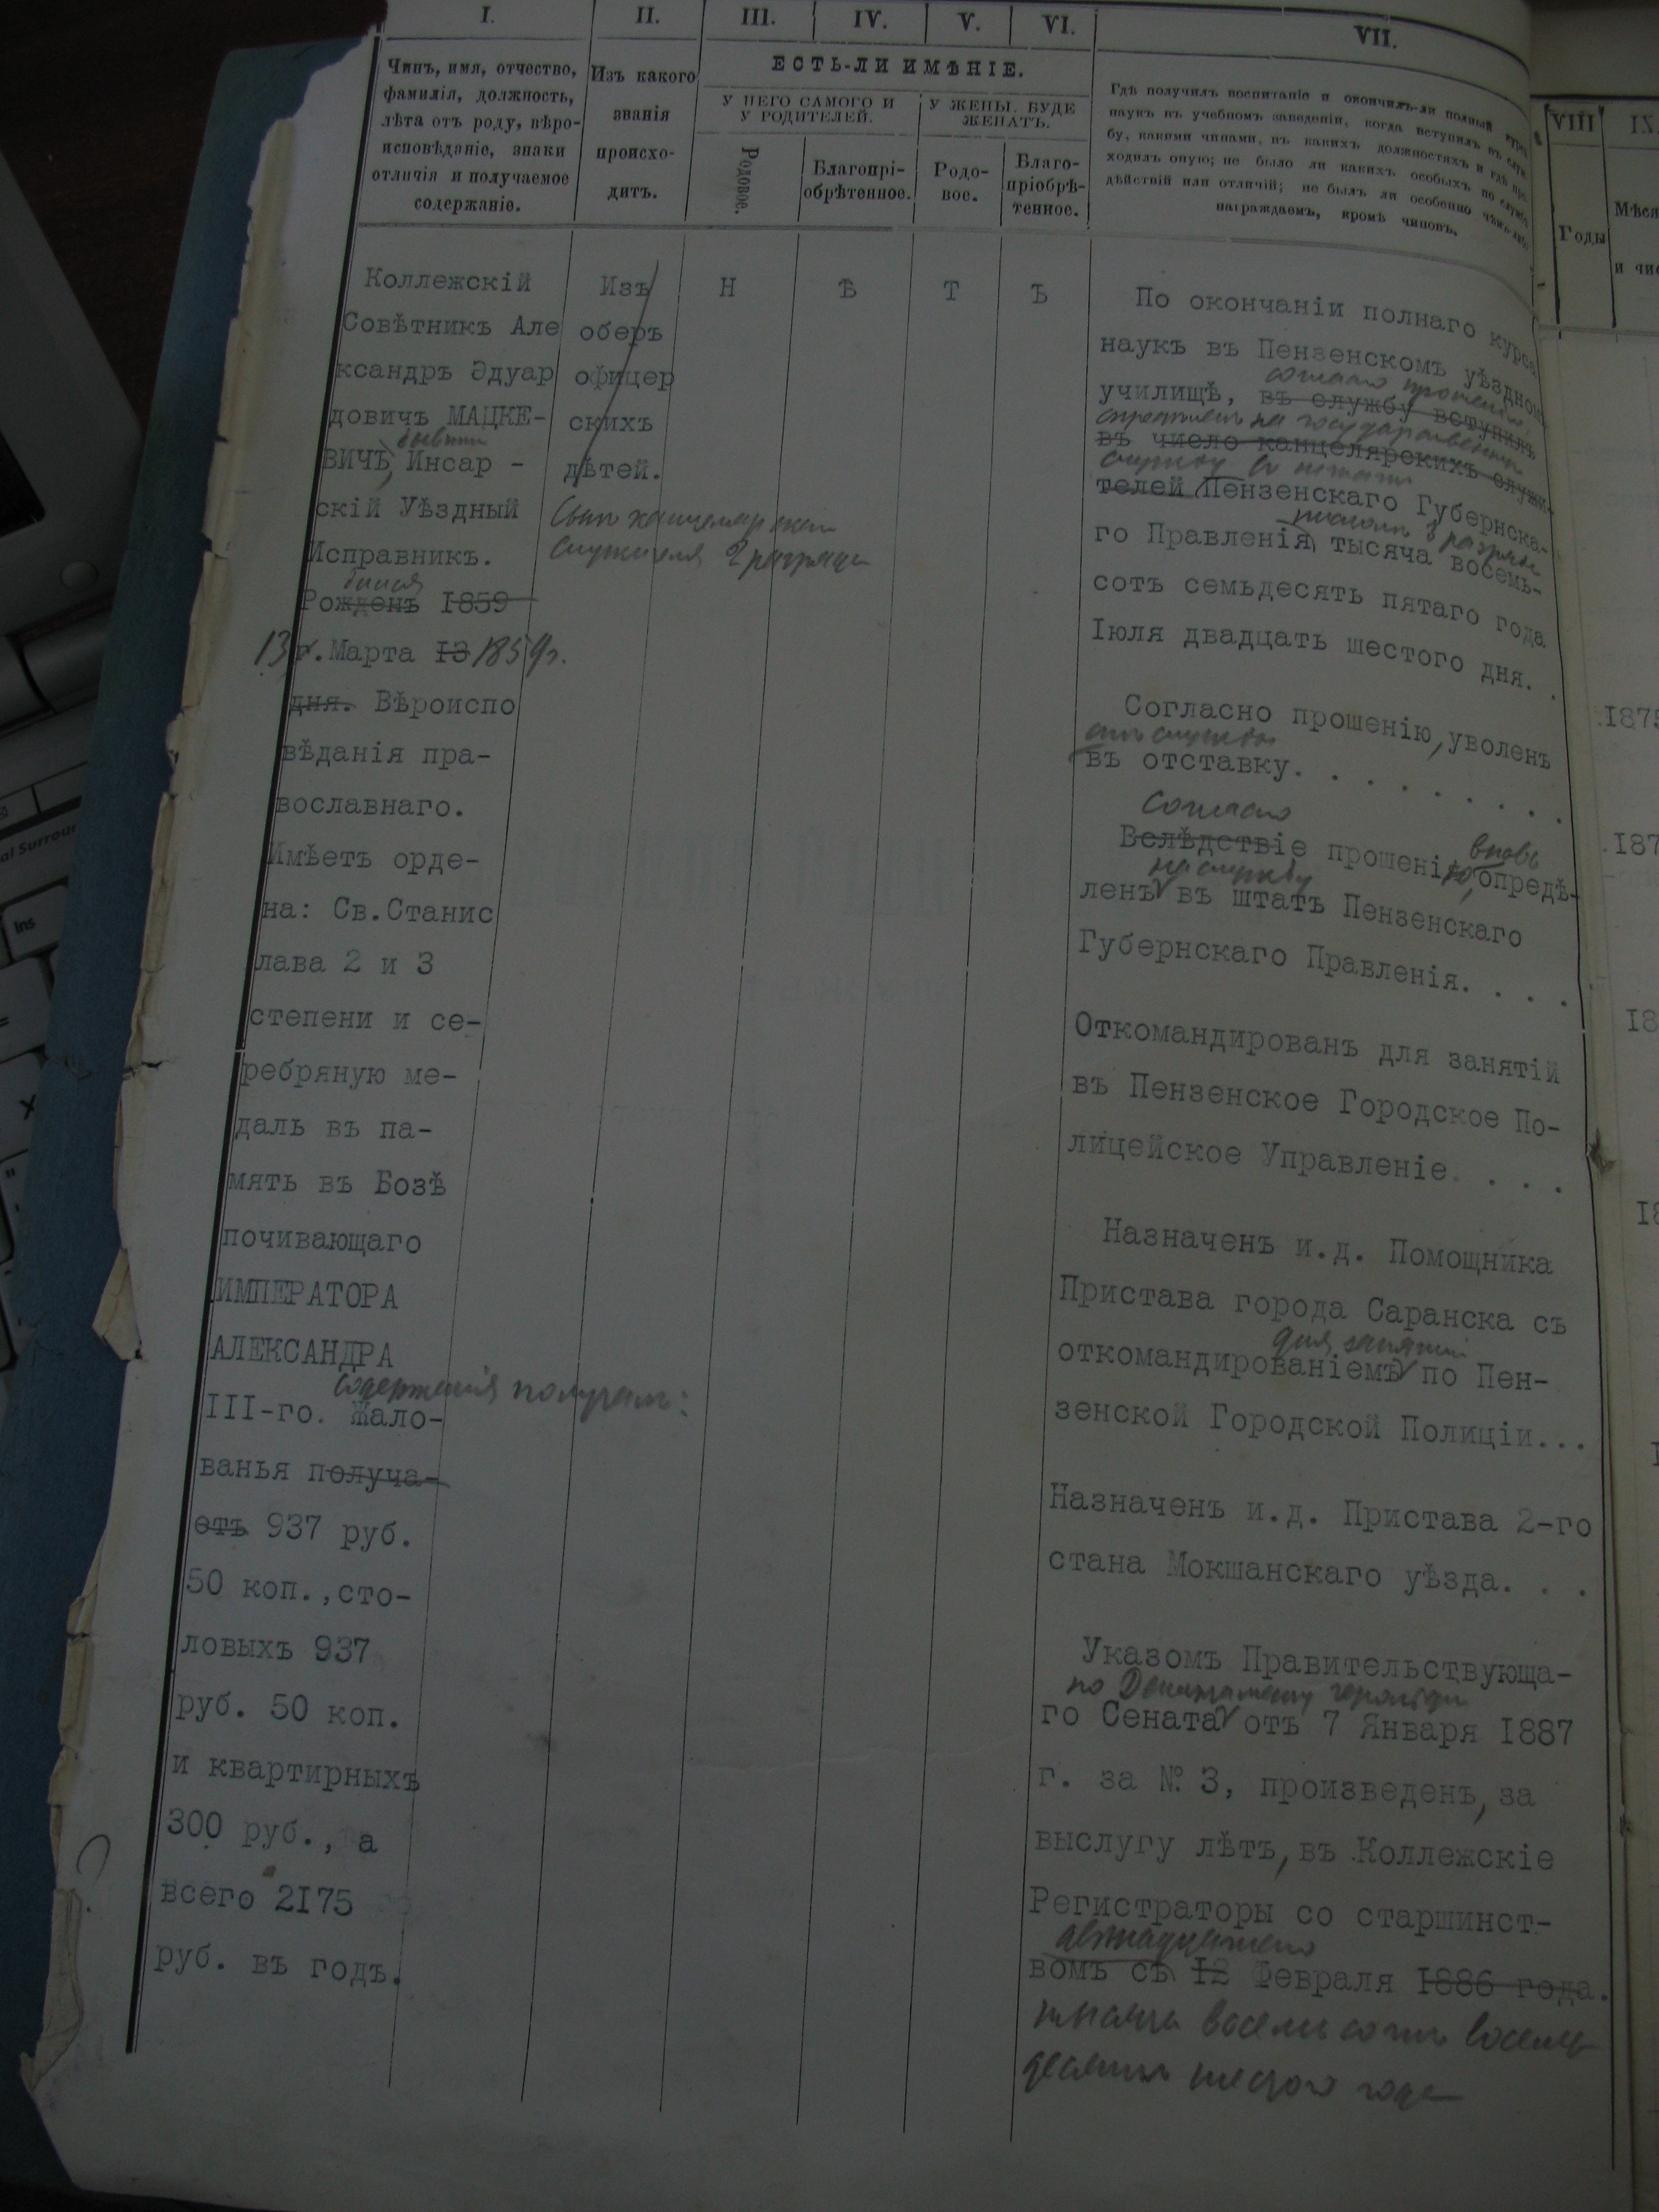 I.
II.
III.
IV.
V.
VI.
VII.
VIII
IX.
Чинъ, имя, отчество,
фамилія, должность,
лѣта отъ роду, вѣро-
исповѣданіе, знаки
отличія и получаемое
содержаніе.
Изъ какого
званія
происхо-
дитъ.
ЕСТЬ-ЛИ ИМѢНІЕ.
У НЕГО САМОГО И
У РОДИТЕЛЕЙ.
У ЖЕНЫ, БУДЕ
ЖЕНАТЪ.
Родовое.
Благопрі-
обрѣтенное.
Родо-
вое.
Благо-
пріобрѣ-
тенное.
Гдѣ получилъ воспитаніе и окончилъ-ли полный курсъ
наукъ въ учебномъ заведеніи, когда вступилъ въ служ-
бу, какими чинами, въ какихъ должностяхъ и гдѣ про-
ходилъ оную; не было ли какихъ особыхъ по службѣ
дѣйствій или отличій; не былъ ли особенно чѣмъ-либо
награждаемъ, кромѣ чиновъ.
Годы
Мѣся
и чис
Коллежскій
Совѣтникъ Але
ксандръ Эдуар
довичъ МАЦКЕ-
бывшій
ВИЧЪ, Инсар -
скій Уѣздный
Исправникъ.
Рожденъ 1859
13 г. Марта 13 1859г.
дня. Вѣроиспо
вѣданія пра-
вославнаго.
Имѣетъ орде-
на: Св.Станис
лава 2 и 3
степени и се-
ребряную ме-
даль въ па-
мять въ Бозѣ
почивающаго
ИМПЕРАТОРА
АЛЕКСАНДРА
содержанія получаетъ:
III-го. Жало-
ванья получа-
етъ 937 руб.
50 коп.,сто-
ловыхъ 937
руб. 50 коп.
и квартирныхъ
300 руб., а
всего 2175
руб. въ годъ.
Изъ
оберъ
офицер
скихъ
дѣтей.
Сынъ канцелярскаго
служителя 2 разряда
Н Ѣ Т Ъ
По окончаніи полнаго курса
наукъ въ Пензенскомъ уѣздномъ
согласно прошенію,
училищѣ, въ службу вступилъ
опредѣленъ на государственную
въ число канцелярскихъ служи-
службу въ штатъ
телей Пензенскаго Губернска-
писцомъ 3 разряда
го Правленія, тысяча восемь-
сотъ семьдесять пятаго года
Іюля двадцать шестого дня. .
1875
Согласно прошенію, уволенъ
отъ службы
въ отставку. . . . . . . .
187
Согласно
Вслѣдствіе прошенію, вновь опредѣ-
на службу
ленъ въ штатъ Пензенскаго
Губернскаго Правленія. . . .
18
Откомандированъ для занятій
въ Пензенское Городское По-
лицейское Управленіе. . . .
18
Назначенъ и.д. Помощника
Пристава города Саранска съ
для занятій
откомандированіемъ по Пен-
зенской Городской Полиціи...
Назначенъ и.д. Пристава 2-го
стана Мокшанскаго уѣзда. . .
Указомъ Правительствующа-
по Департаменту герольдіи
го Сената отъ 7 Января 1887
г. за № 3, произведенъ, за
выслугу лѣтъ, въ Коллежскіе
Регистраторы со старшинст-
двѣнадцатаго
вомъ съ 12 Февраля 1886 года.
тысяча восемьсотъ восемь
десятъ шестого года